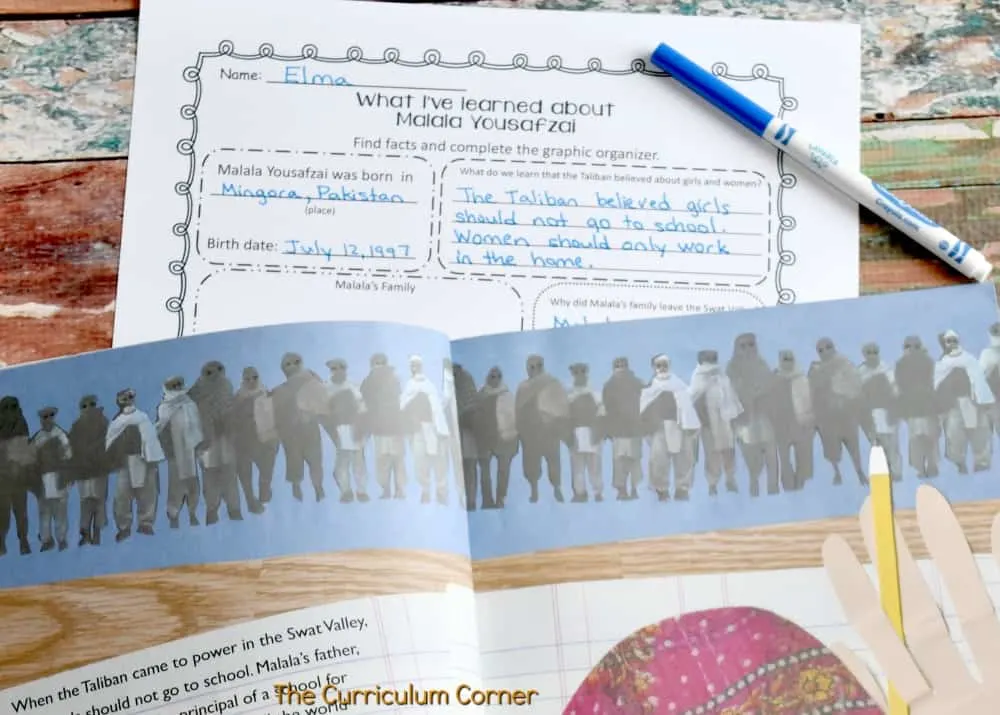 Name: Elma
What I've learned about
Malala Yousafzai
Find facts and complete the graphic organizer.
Malala Yousafzai was born in
Mingora, Pakistan
(place)
Birth date: July 12, 1997
What do we learn that the Taliban believed about girls and women?
The Taliban believed girls
should not go to school.
Women should only work
in the home.
Malala's Family
Why did Malala's family leave the Swat
Crayola
When the Taliban came to power in the Swat Valley,
should not go to school. Malala's father,
principal of a school for
world
The Curriculum Corner